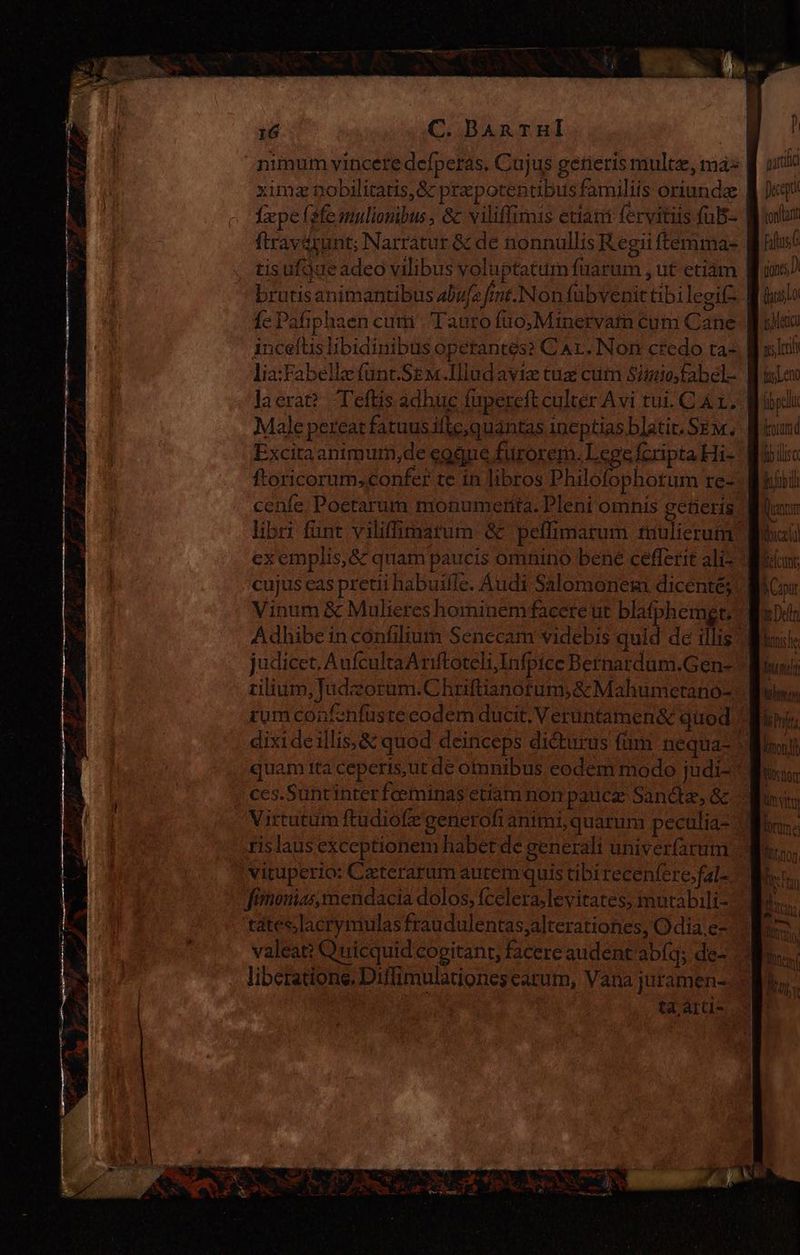 16 C. BARTHI
nimum vincere desperas. Cujus generis multæ, ma-
ximæ nobilitatis, & præpotentibus familiis oriundæ
sæpe sese mulionibus, & vilissimis etiam servitiis sub-
straverunt; Narratur & de nonnullis Regii stemma-
tis usque adeo vilibus voluptatum suarum, ut etiam
brutis animantibus abusæ sint. Non subvenit tibi legis-
se Pasiphaen cum Tauro suo, Minervam cum Cane
incestis libidinibus operantes? CAL. Non credo ta-
lia: Fabellæ sunt. SEM. Illud aviæ tuæ cum Simio, fabel-
la erat? Testis adhuc superest culter Avi tui. CAL.
Male pereat fatuus iste, quantas ineptias blatit. SEM.
Excita animum, de eoque furorem. Lege scripta Hi-
storicorum, confer te in libros Philosophorum re-
cense Poetarum monumenta. Pleni omnis generis
libri sunt vilissimarum & pessimarum mulierum
exemplis, & quam paucis omnino bene cesserit ali-
cujus eas pretii habuisse. Audi Salomonem dicentē;
Vinum & Mulieres hominem facere ut blasphemet.
Adhibe in consilium Senecam videbis quid de illis
judicet. Ausculta Aristoteli, Inspice Bernardum. Gen-
tilium, Judæorum. Christianorum, & Mahumetano-
rum consensus te eodem ducit. Veruntamen & quod
dixi de illis, & quod deinceps dicturus sum nequa-
quam ita ceperis, ut de omnibus eodem modo judi-
ces. Sunt inter fœminas etiam non paucæ Sanctæ, &
Virtutum studiosæ generosi animi, quarum peculia-
ris laus exceptionem habet de generali universarum
vituperio: Cæterarum autem quis tibi recensere, fal-
simonias, mendacia dolos, scelera, levitates, mutabili-
tates, lacrymulas fraudulentas, alterationes, Odia, e-
valeat? Quicquid cogitant, facere audent absq; de-
liberatione. Dissimulationes earum, Vana juramen-
ta, arti-